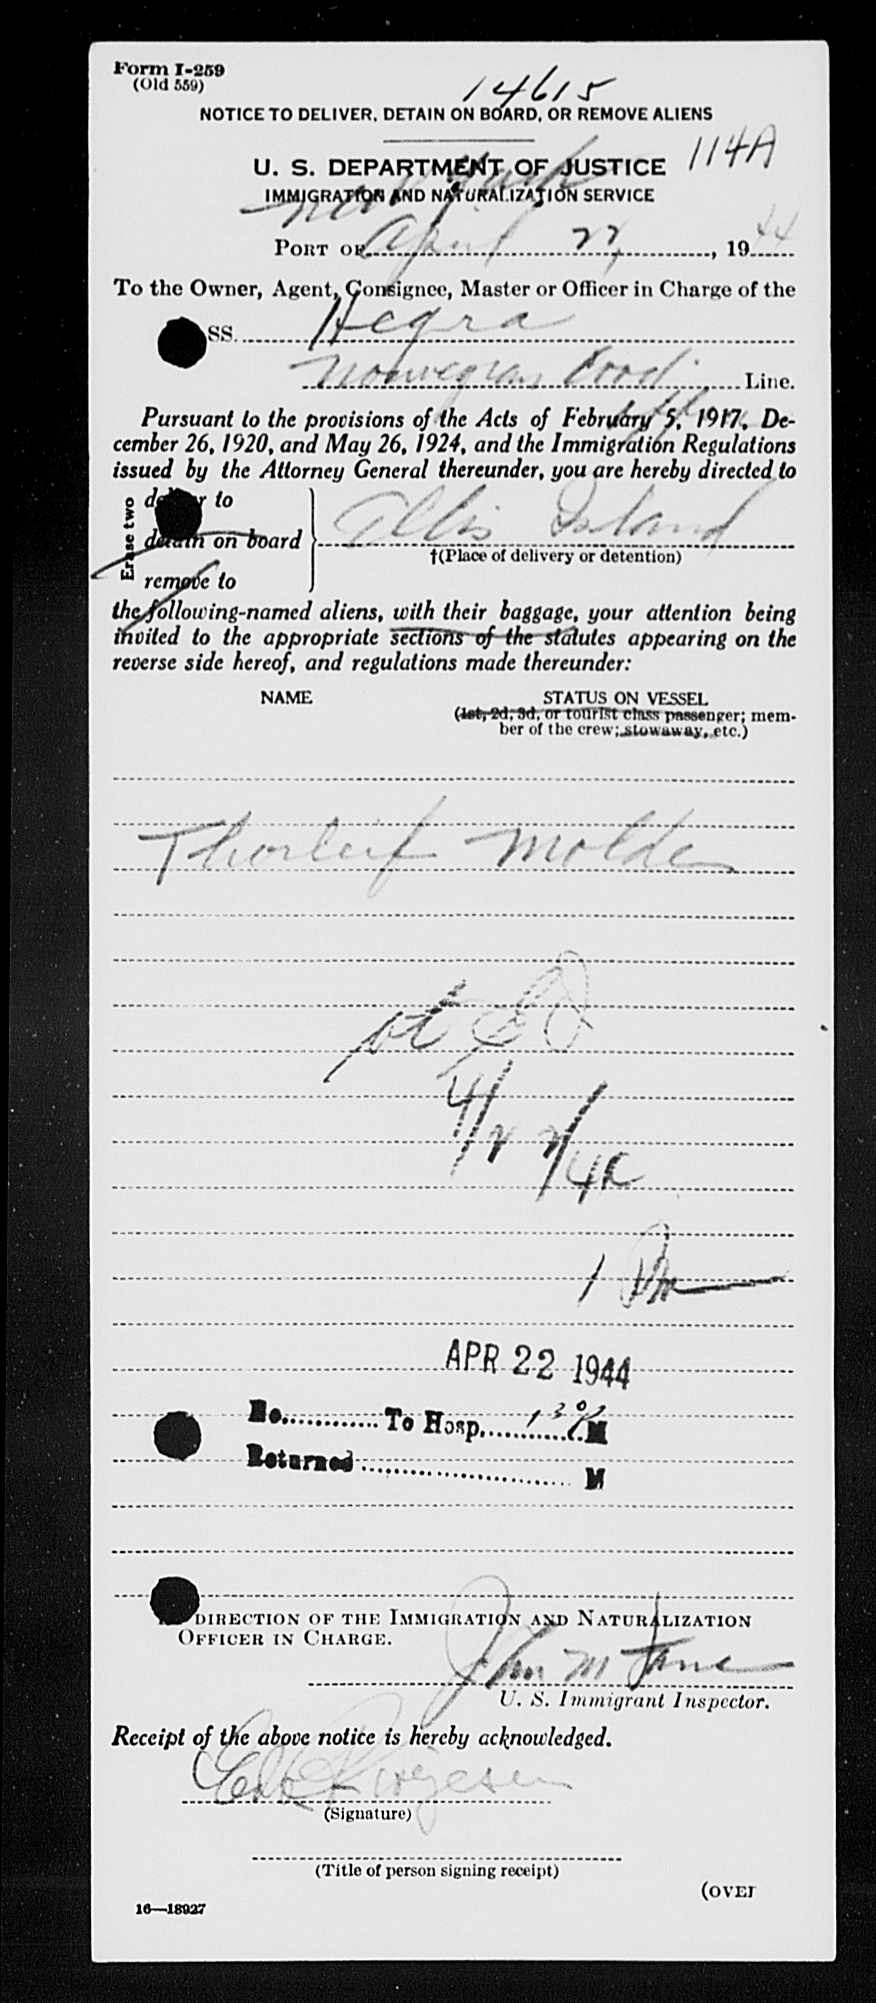 Form I-259
(Old 559)
14615
NOTICE TO DELIVER, DETAIN ON BOARD, OR REMOVE ALIENS
114A
U. S. DEPARTMENT OF JUSTICE
IMMIGRATION AND NATURALIZATION SERVICE
New York
PORT OF April 22, 1944
To the Owner, Agent, Consignee, Master or Officer in Charge of the
SS. Hegra
Norwegian Line.
Pursuant to the provisions of the Acts of February 5, 1917, De-
cember 26, 1920, and May 26, 1924, and the Immigration Regulations
issued by the Attorney General thereunder, you are hereby directed to
Erase two
deliver to
detain on board
Ellis Island
†(Place of delivery or detention)
remove to
the following-named aliens, with their baggage, your attention being
invited to the appropriate sections of the statutes appearing on the
reverse side hereof, and regulations made thereunder:
NAME STATUS ON VESSEL
(1st, 2d, 3d, or tourist class passenger; mem-
ber of the crew; stowaway, etc.)
Thorleif Molden
4/22/44
1 PM
APR 22 1944
No. To Hosp. 130 P M
Returned M
DIRECTION OF THE IMMIGRATION AND NATURALIZATION
OFFICER IN CHARGE.
John M
U. S. Immigrant Inspector.
Receipt of the above notice is hereby acknowledged.
(Signature)
(Title of person signing receipt)
(OVER
16—18927